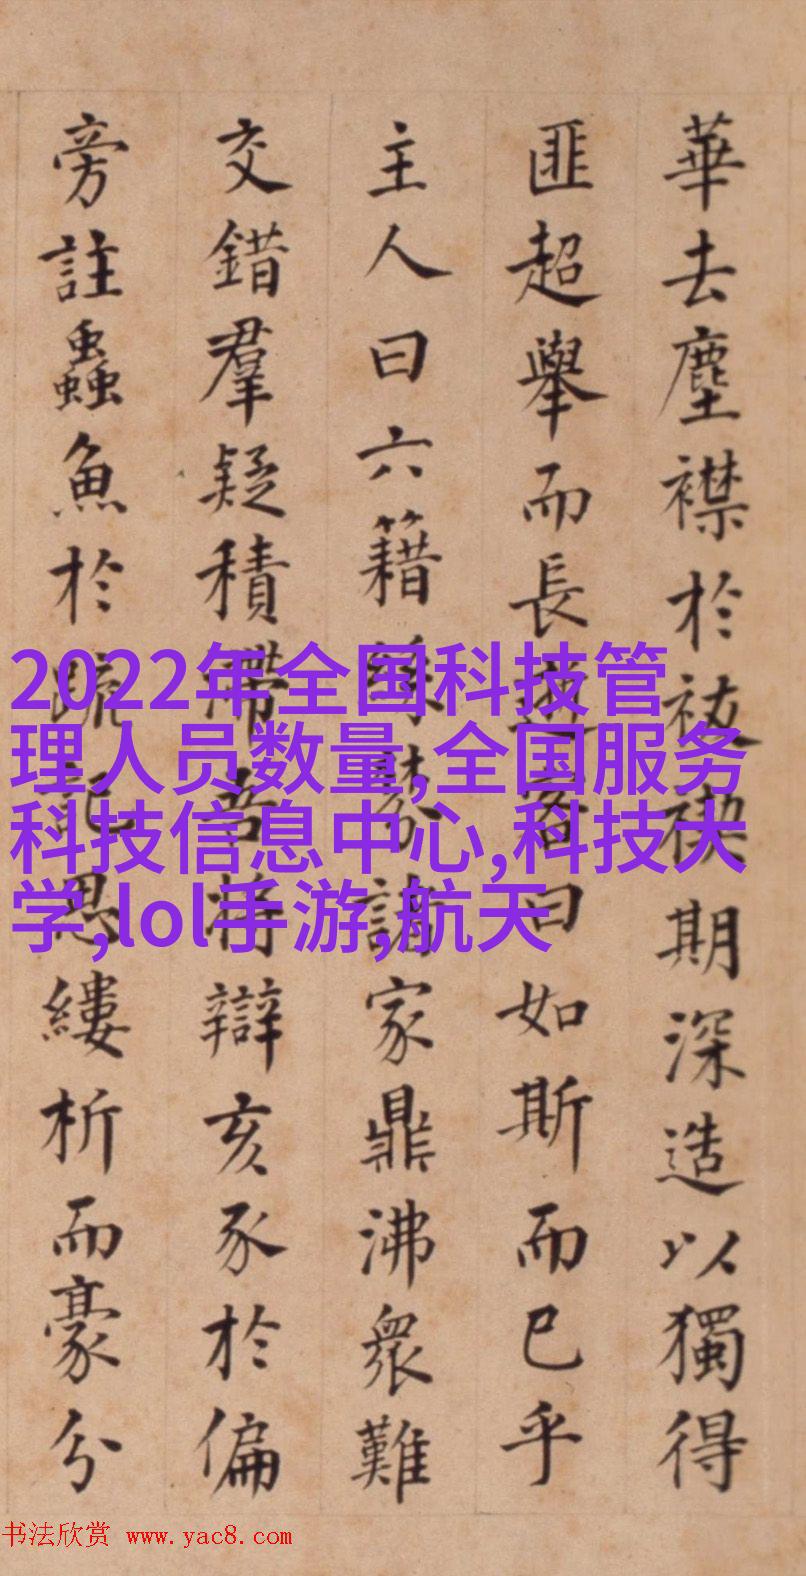 華去塵襟於祓禊期深造以獨得
匪超舉而長客曰如斯而已乎
主人曰六籍諸家鼎沸衆難
交錯羣疑積滯吾將辯亥豕於偏
旁註蟲魚於疏記思縷析而豪分
2022年全国科技管
理人员数量,全国服务
科技信息中心,科技大
学,lol手游,航天
书法欣赏 www.yac8.com